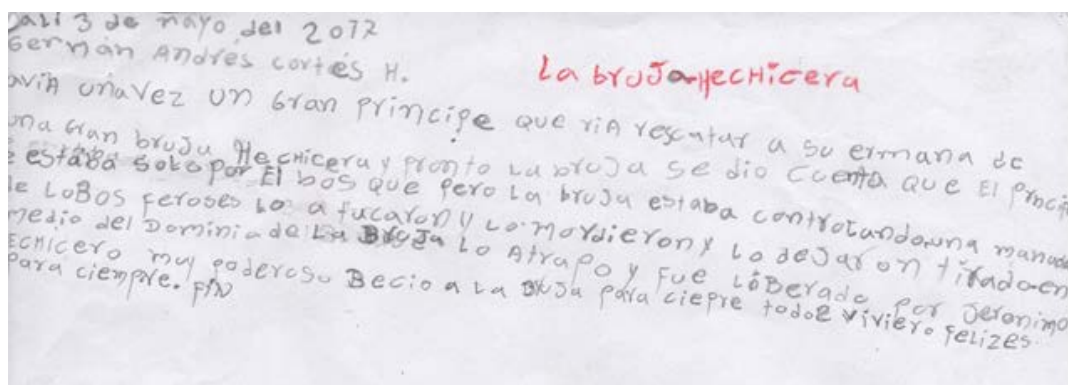 Cali 3 de mayo del 2012
German Andrés cortés H.
La bruJa HecHicera
avia unavez un Gran principe que via rescatar a su ermana de
una Gran bruJa HecHicera y pronto La bruJa se dio cuenta que El princi
e estaba solo por El bosque pero La bruJa estaba controlando una manada
de LoBos feroses Lo atacaron y Lo mordieron y Lo deJaron tirado en
medio del Dominio de La BruJa Lo Atrapo y Fue LiBerado por Jeronimo
ECHicero muy poderoso Becio a La BruJa para ciepre todoz viviero felizes
para ciempre. FIN